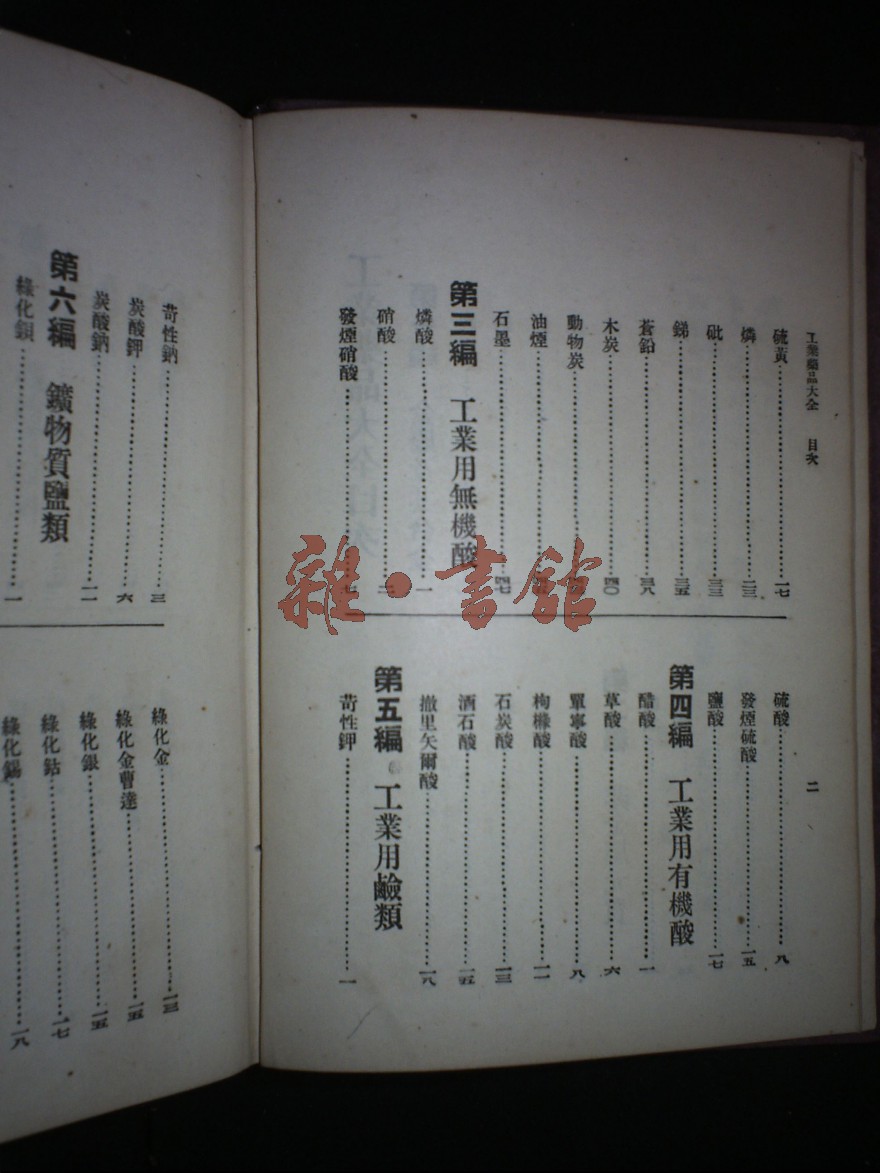 工業藥品大全 目次 二
硫黃 一七
燐 二三
砒 三三
銻 三五
蒼鉛 三八
木炭 四〇
動物炭
油煙
石墨 四七
第三編 工業用無機酸
燐酸 一
硝酸 二
發煙硝酸 七
硫酸 八
發煙硫酸 一五
鹽酸 一七
第四編 工業用有機酸
醋酸 一
草酸 六
單寧酸 八
枸櫞酸 一一
石炭酸 一三
酒石酸 一五
撤里矢爾酸 一八
第五編 工業用鹼類
苛性鉀 一
苛性鈉 三
炭酸鉀 六
炭酸鈉 一一
第六編 鑛物質鹽類
綠化鋇 一
綠化金 一三
綠化金曹達 一五
綠化銀 一五
綠化鈷 一七
綠化錫 一八
雜·書館